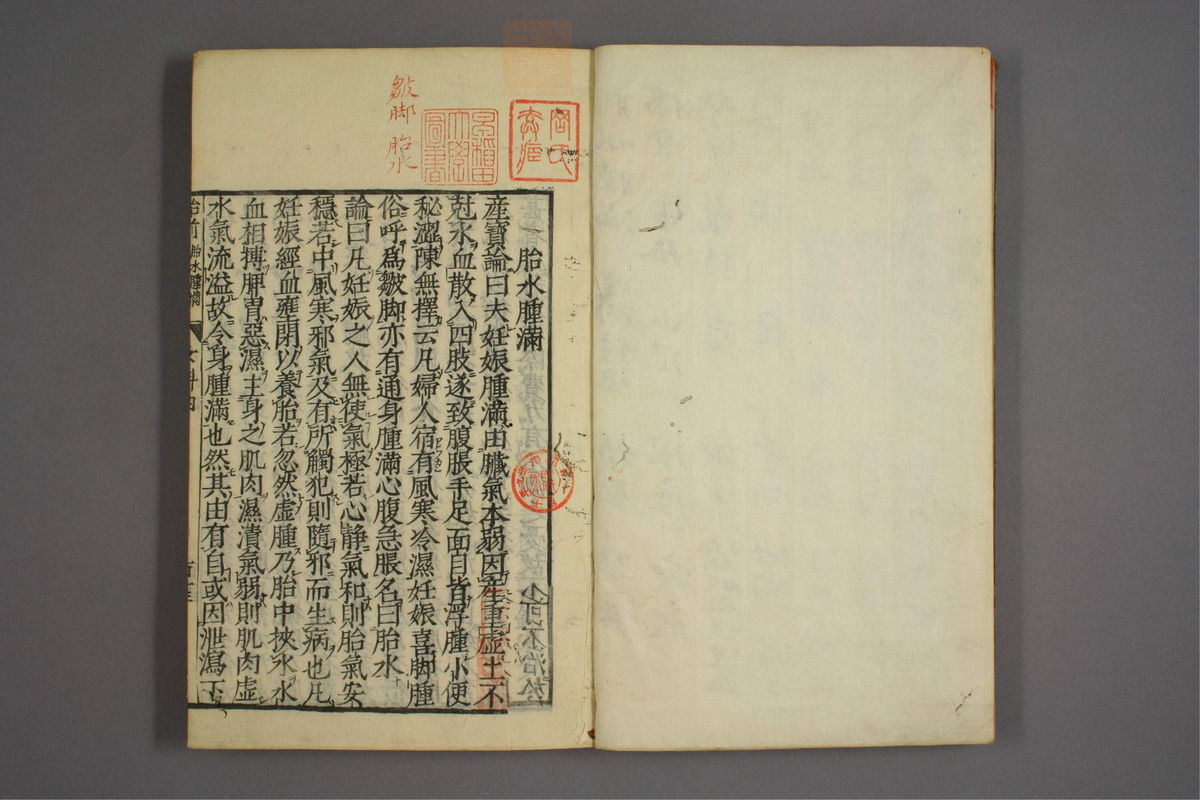 皺脚 胎水
早稲田
大學
圖書
胎水腫滿
産寶論曰夫妊娠腫滿由臓氣本弱因産重虚土不
尅水血散入四肢遂致腹脹手足面目皆浮腫小便
秘澀陳無擇云凡婦人宿有風寒冷濕妊娠喜脚腫
俗呼爲皺脚亦有通身腫滿心腹急脹名曰胎水
論曰凡妊娠之人無使氣極若心静氣和則胎氣安
穩若中風寒邪氣及有所觸犯則隨邪而生病也凡
妊娠經血壅閉以養胎若忽然虚腫乃胎中挾水水
血相搏脾胃惡濕主身之肌肉濕漬氣弱則肌肉虚
水氣流溢故令身腫滿也然其由有自或因泄瀉下
胎水腫滿